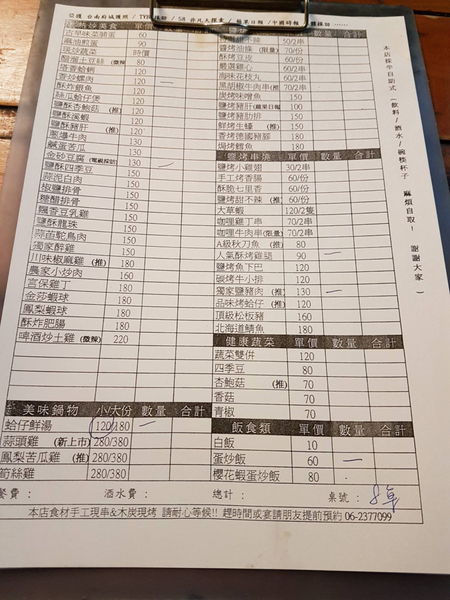 本店採半自助式（飲料/酒水/碗筷杯子 麻煩自取！ 謝謝大家）
單價 數量 合計
古早味菜脯蛋 60
麻油煎蛋 90
現炒蔬菜 時價
酸溜土豆絲 (微辣) 80
120
香炒螺肉 130 一
酥炸銀魚 120
絲瓜蛤仔煲 120
鹽酥杏鮑菇 (推) 120
鹽酥溪蝦 120
鹽酥豬肝 (推) 120
120
鹹蛋苦瓜 130
金砂豆腐 (電視採訪) 130 一
鹽酥四季豆 150
蒜泥白肉 150
椒鹽排骨 150
糖醋排骨 150
飄香豆乳雞 150
鹽酥龍珠 150
蒜苗鴕鳥肉 150
獨家醉雞 150
川味椒麻雞 (推) 160
農家小炒肉 160
宮保雞丁 180
金莎蝦球 180
鳳梨蝦球 180
酥炸肥腸 180
啤酒炒土雞 (微辣) 220
美味鍋物 小/大份 數量 合計
蛤仔鮮湯 120/180 一
蒜頭雞 (新上市) 280/380
鳳梨苦瓜雞 (推) 280/380
筍絲雞 280/380
50/2串
醬烤油條 (限量) 70/份
酥烤豆皮 60/份
嚴選雞心 60/2串
海味花枝丸 60/2串
黑胡椒牛肉串 (推) 70/2串
炭烤味噌魚 150
鹽烤豬肝 (蘋果日報) 100
鹽烤豬肋排 150
鮮烤生蠔 (推) 150
香烤德國豬腳 180
焗烤鱈魚 180
鹽烤串燒 單價 數量 合計
鹽烤小雞翅 30/2串
手工烤香腸 60/份
酥脆七里香 60/份
鹽烤甜不辣 (推) 60/份
大草蝦 120/2隻
咖哩雞丁串 70/2串
咖哩牛肉串 (限量) 70/2串
A級秋刀魚 (推) 80
人氣酥烤雞腿 90 一
鹽烤魚下巴 120
碳烤牛小排 120
獨家鹽豬肉 (推) 130 一
品味烤蛤仔 (推) 120
頂級松板豬 160
北海道鯖魚 180
健康蔬菜 單價 數量 合計
蔬菜雙併 120
四季豆 80
杏鮑菇 (推) 70
香菇 70
青椒 70
飯食類 單價 數量 合計
白飯 10
蛋炒飯 60 一
櫻花蝦蛋炒飯 80
餐費： 酒水費： 總計： 桌號：8桌
本店食材手工現串&木炭現烤 請耐心等候!! 趕時間或宴請朋友提前預約 06-2377099